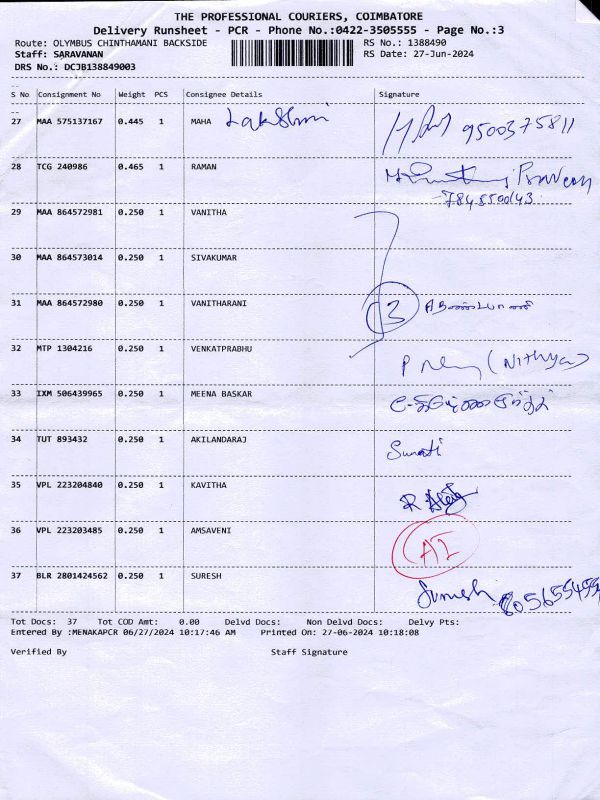 THE PROFESSIONAL COURIERS, COIMBATORE
Delivery Runsheet - PCR - Phone No.:0422-3505555 - Page No.:3
Route: OLYMBUS CHINTHAMANI BACKSIDE RS No.: 1388490
Staff: SARAVANAN RS Date: 27-Jun-2024
DRS No.: DCJB138849003
S No Consignment No Weight PCS Consignee Details Signature
27 MAA 575137167 0.445 1 MAHA Lakshmi 9500375811
28 TCG 240986 0.465 1 RAMAN Praveen
7845500143
29 MAA 864572981 0.250 1 VANITHA
30 MAA 864573014 0.250 1 SIVAKUMAR
31 MAA 864572980 0.250 1 VANITHARANI 3
32 MTP 1304216 0.250 1 VENKATPRABHU P (Nithya)
33 IXM 506439965 0.250 1 MEENA BASKAR
34 TUT 893432 0.250 1 AKILANDARAJ
35 VPL 223204840 0.250 1 KAVITHA
36 VPL 223203485 0.250 1 AMSAVENI AI
37 BLR 2801424562 0.250 1 SURESH Suresh
Tot Docs: 37 Tot COD Amt: 0.00 Delvd Docs: Non Delvd Docs: Delvy Pts:
Entered By :MENAKAPCR 06/27/2024 10:17:46 AM Printed On: 27-06-2024 10:18:08
Verified By Staff Signature